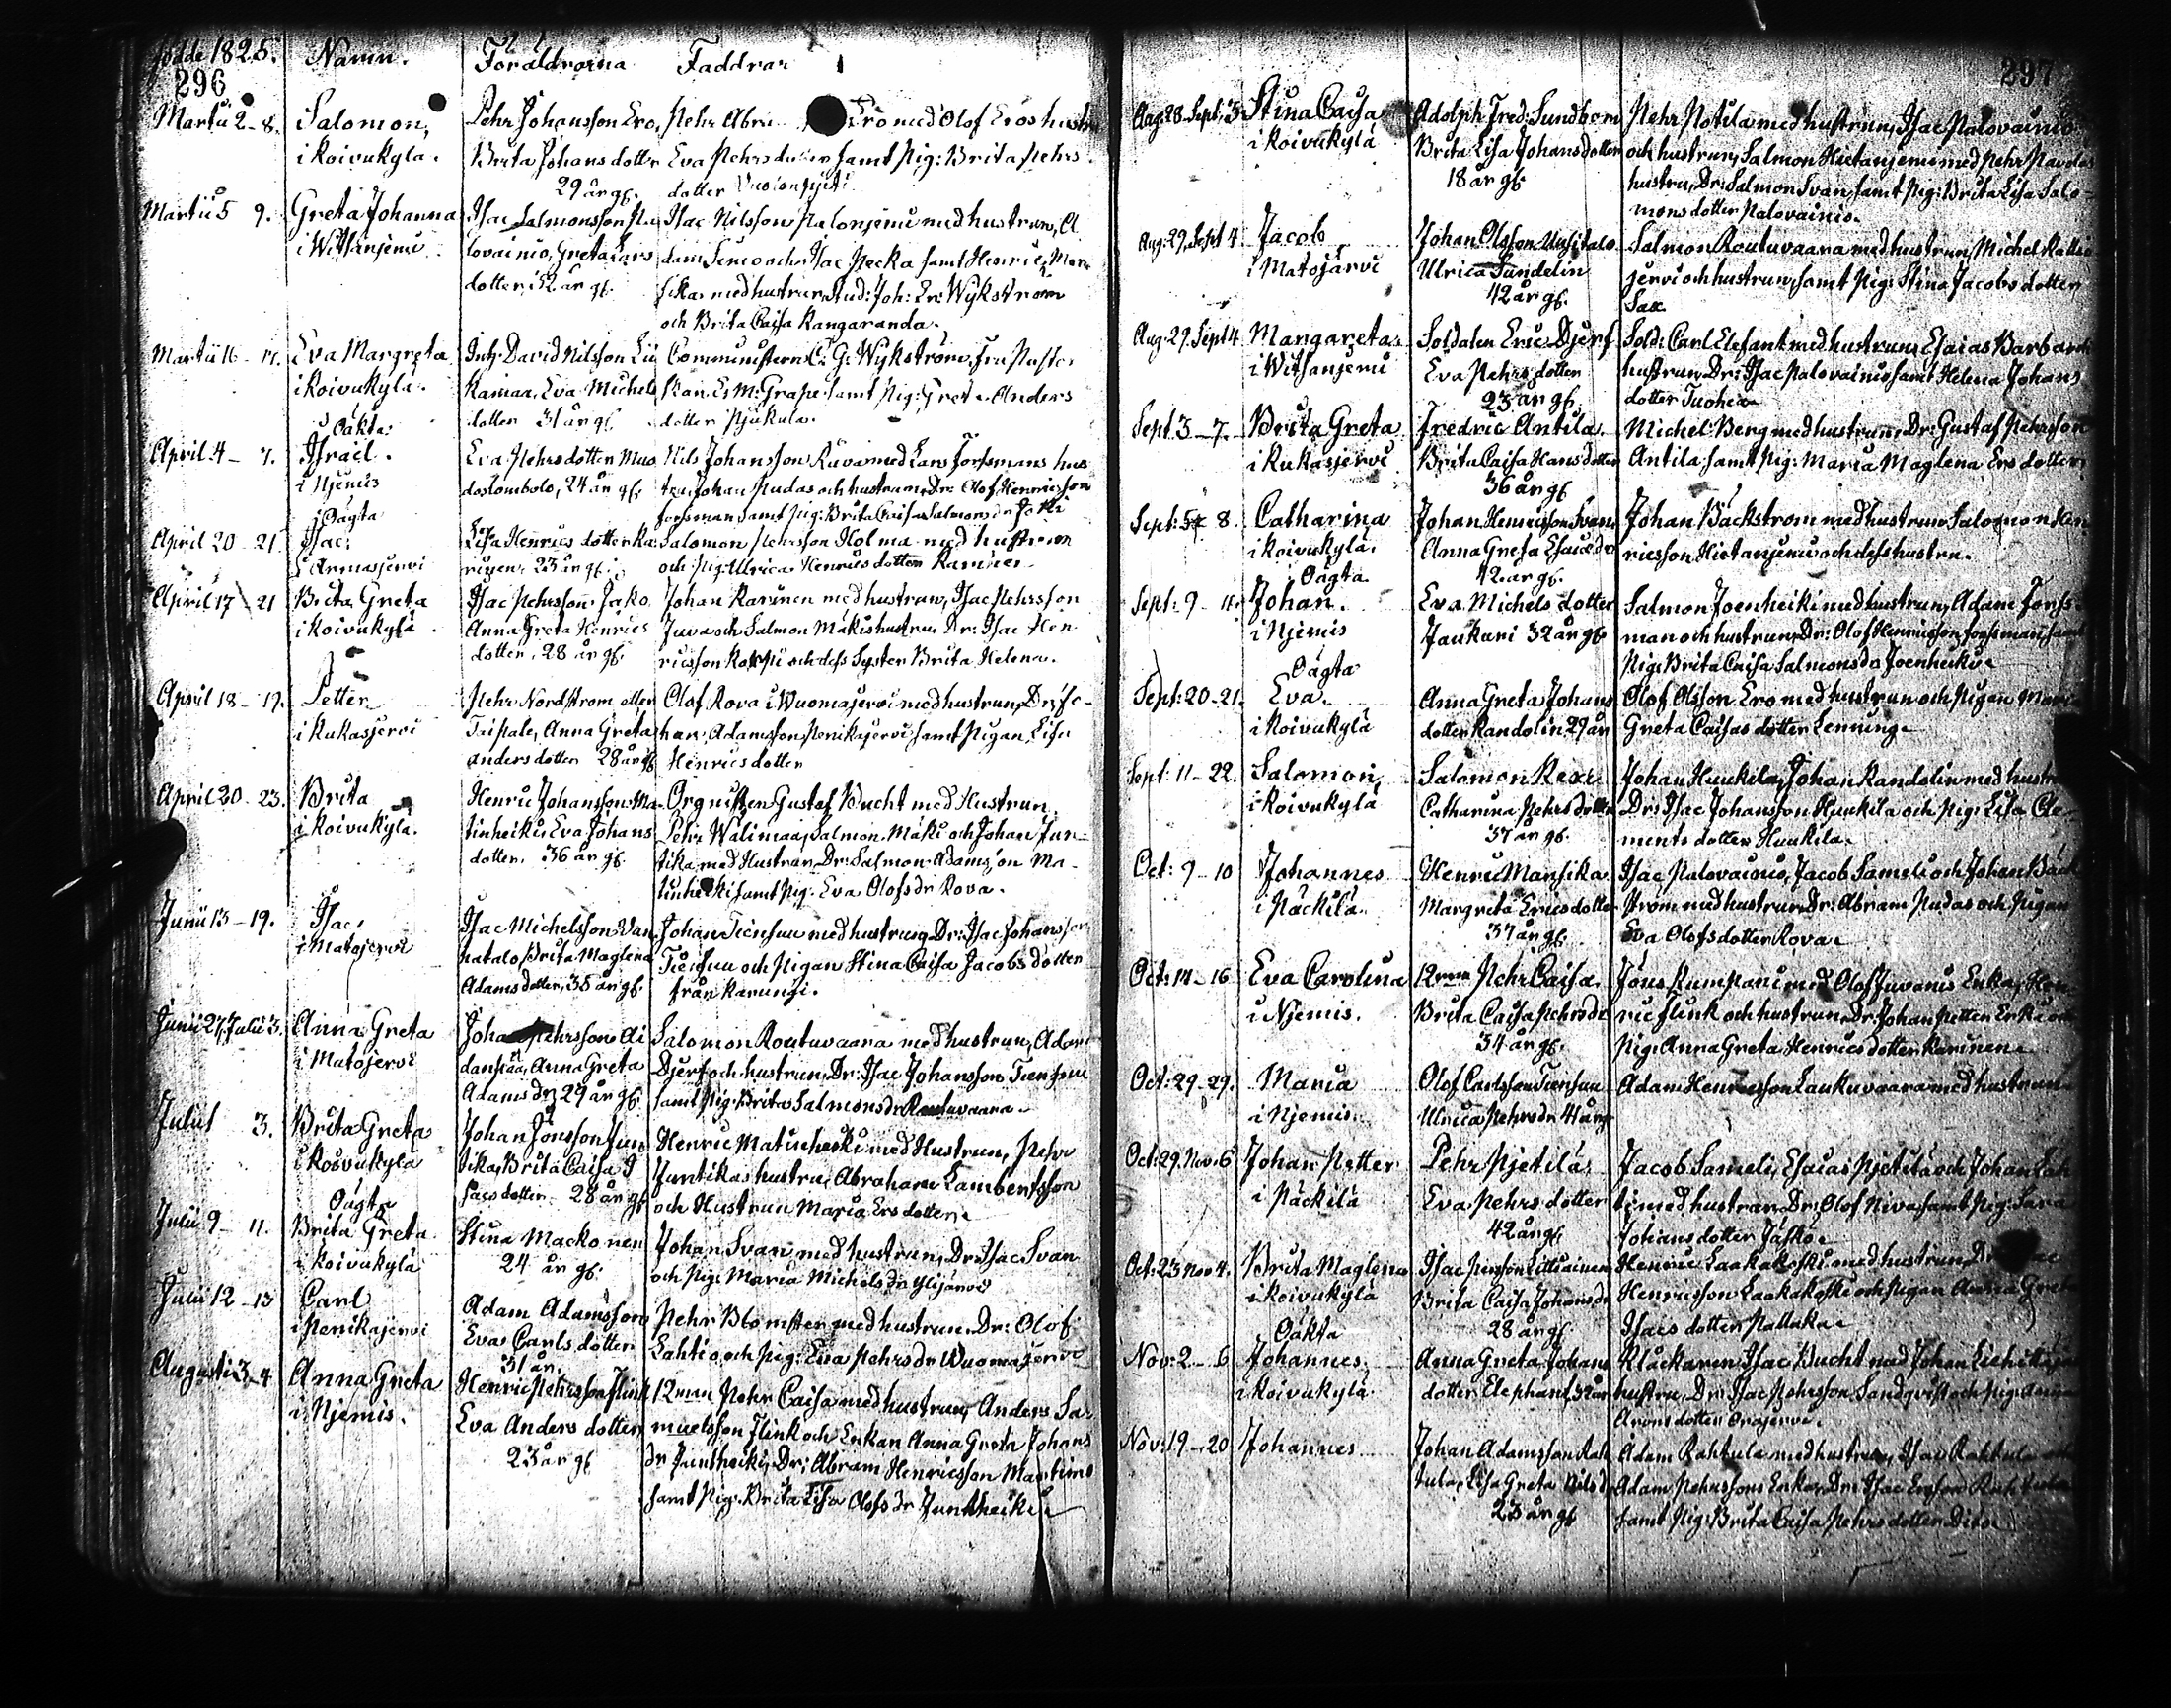 födde 1825. Namn. Föräldrarna Faddrar
296
Martii 2-8. Salomon, Pehr Johansson Ero, Pehr Abra Ero med Olof Eros hustru
i Koivukylä. Brita Johans dotter Eva Pehrsdotter samt Pig: Brita Pehrs
29 år gl. dotter
Martii 5 9. Greta Johanna Isac Salmonsson Pa Isac Nilsson Palonjemi med hustrun, A
i Witsanjemi lovainio, Greta Lars dam Simo och Isac Pecka samt Henric Man
dotter, 32 år gl. sika med hustrun, Stud: Joh: Er: Wykström
och Brita Caisa Kangaranda.
Martii 16-17. Eva Margreta Inh: David Nilsson Lii Comministern C. G. Wykström, Fru Pasto
i Koivukylä. kamaa, Eva Michels skan E: M: Grape samt Pig: Greta Anders
dotter 31 år gl. dotter Pjukala.
Oäkta:
April 4-7. Israel. Eva Pehrsdotter Muo Nils Johansson Kuva med Lars Forssmans hus
i Njemis doslombolo, 24 år gl. tru, Johan Pudas och hustrun, Dr: Olof Henricsson
Forssman samt Pig: Brita Caisa Salmonsdr
Oägta
April 20-21. Isac, Lisa Henrics dotter Ka Salomon Pehrsson Holma med hustrun
i Armasjervi 23 år gl. och Pig: Ulrica Henrics dotter Karinen
April 17-21 Brita Greta Isac Pehrsson Jako Johan Karinen med hustrun, Isac Pehrsson
i Koivukylä. Anna Greta Henrics Juva och Salmon Mäkis hustru Dr: Isac Hen
dotter, 28 år gl. ricsson och dess Syster Brita Helena.
April 18-19. Petter Pehr Nordström eller Olof Rova i Wuomajervi med hustrun, Dr: Jo
i Kukasjervi Taipale, Anna Greta han Adamsson Penikajervi samt Pigan Lisa
anders dotter 28 år gl. Henrics dotter
April 20-23. Brita Henric Johansson Ma Orgnisten Gustaf Bucht med Hustrun
i Koivukylä. tinheiki, Eva Johans Pehr Wälimaa, Salmon Mäki och Johan Jun-
dotter. 36 år gl. tika med Hustrun, Dr: Salmon Adamsson Ma-
tinheiki samt Pig: Eva Olofsdr Rova.
Junii 13-19. Isac, Isac Michelsson Van Johan Tiensuu med hustrun, Dr: Isac Johansson
i Matojervi hatalo, Brita Maglena Tiensuu och Pigan Stina Caisa Jacobs dotter
Adams dotter, 35 år gl. från Karungi.
Junii 27, Julii 3. Anna Greta Johan Pehrsson Ai Salomon Routuvaara med hustrun, Adam
i Matojervi danpää, Anna Greta Djerf och hustrun, Dr: Isac Johansson Tiensuu
Adamsdr, 29 år gl. samt Pig: Brita Salmonsdr Routuvaara.
Julii 1 3. Brita Greta Johan Jönsson Jun Henric Matinheiki med Hustrun, Pehr
i Koivukylä tika, Brita Caisa I Juntikas hustru, Abraham Lambertsson
sacs dotter 28 år gl. och Hustrun Maria Ersdotter.
Oägta
Julii 9-11. Brita Greta Stina Mackonen Johan Svan med hustrun, Dr: Isac Svan
i Koivukylä 24 år gl. och Pig: Maria Michelsdr Ylijärvi
Julii 12-13 Carl Adam Adamsson Pehr Blomster med hustrun, Dr: Olof
i Penikajervi Eva Carls dotter Lahti och Pig: Eva Pehrsdr Wuomajervi
31 år.
Augusti 3-4 Anna Greta Henric Pehrsson Flink 12man Pehr Caisa med hustrun, Anders Sa-
i Njemis. Eva Anders dotter muelsson Flink och Enkan Anna Greta Johans
23 år gl. dr Juntheiki, Dr: Abram Henricsson Martimo
samt Pig: Brita Lisa Olofsdr Juntheiki
297
Aug: 28-Sept: 3 Stina Caisa Adolph Fred: Sundbom Pehr Potila med hustrun, Isac Palovainio
i Koivukylä Brita Lisa Johansdotter och hustrun, Salmon Hietanjemi med Pehr
18 år gl. hustru, Dr: Salmon Svan, samt Pig: Brita Lisa Salo-
mons dotter Palovainio.
Aug: 29, Sept 4 Jacob Johan Olsson Uusitalo Salmon Routuvaara med hustrun, Michel
i Matojärvi Ulrica Sundelin jervi och hustrun, samt Pig: Stina Jacobs dotter
42 år gl. Sax.
Aug: 29. Sept 4 Margareta Soldaten Eric Djerf Sold: Carl Elefant med hustrun, Esaias Barbards
i Witsanjemi Eva Pehrs dotter hustrun, Dr: Isac Palovainio samt Helena Johans
23 år gl. dotter Tuohia
Sept. 3-7. Brita Greta Fredric Antila. Michel Berg med hustrun, Dr: Gustaf Pehrsson
i Kukasjervi Brita Caisa Hans dotter Antila, samt Pig: Maria Maglena Ers dotter.
36 år gl.
Sept: 5 8 Catharina Johan Henricsson Svan Johan Bäckström med hustrun Salomon Hen
i Koivukylä. Anna Greta Esaiædr ricsson Hietanjemi och dess hustru.
42 år gl.
Oägta.
Sept: 9-11. Johan. Eva Michels dotter Salmon Joenheiki med hustrun, Adam Forss-
i Njemis Jaukuri 32 år gl. man och hustrun, Dr: Olof Henricsson Forssman, samt
Pig: Brita Caisa Salmonsdr Joenheiki
Oägta
Sept: 20-21. Eva. Anna Greta Johans Olof Olsson Ero med hustrun och Pigan Maria
i Koivukylä dotter Randolin 29 år Greta Caisas dotter Lenning
Sept: 11-22. Salomon Salomon Rexi Johan Huukila, Johan Randolin med hustru
i Koivukylä Catharina Pehrs dotter Dr: Isac Johansson Huukila och Pig: Lisa Cle-
37 år gl. ments dotter Huukila.
Oct: 9-10 Johannes Henric Mansika Isac Palovainio, Jacob Sameli och Johan Bäck
i Päckilä. Margreta Erics dotter ström med hustrun, Dr: Abram Pudas och Pigan
37 år gl. Eva Olofsdotter Rova
Oct: 14-16 Eva Carolina 12man Pehr Caisa. Jöns Kumpani med Olof Juvanis Enka, Hen
i Njemis. Brita Caisa Pehrsdr ric Flink och hustrun, Dr: Johan Petter Erki
34 år gl. Pig: Anna Greta Henrics dotter Karinen
Oct: 29-29. Maria Olof Carlsson Tiensuu Adam Henricsson Laukuvaara med hustrun
i Njemis. Ulrica Pehrsdr 41 år gl
Oct: 29. Nov: 6 Johan Petter Pehr Pjetilä Jacob Sameli, Esaias Pjetilä och Johan Lah
i Päckilä Eva Pehrs dotter ti med hustrun, Dr: Olof Niva, samt Pig: Sara
42 år gl. Johans dotter Jäskö
Oct: 23 Nov 4. Brita Maglena Isac Persson Littiainen Henric Laakakoski med hustrun, Dr:
i Koivukylä Brita Caisa Johansdr Henricsson Laakakoski och Pigan Anna Greta
28 år gl. Isacs dotter Pallaka
Oäkta
Nov: 2-6 Johannes Anna Greta Johans Klåckaren Isac Bucht med Johan
i Koivukylä. dotter Elephant, 32 år hustru, Dr: Isac Pehrsson Sandqvist och Pig: Anna
Arons dotter Orajervi.
Nov: 19-20 Johannes Johan Adamsson Rah Adam Rahtula med hustrun, Isac Rahtula
tula, Lisa Greta Nilsdr Adam Pehrssons Enka, Dr: Isac Ersson Rahtula
23 år gl. samt Pig: Brita Caisa Pehrs dotter Dito